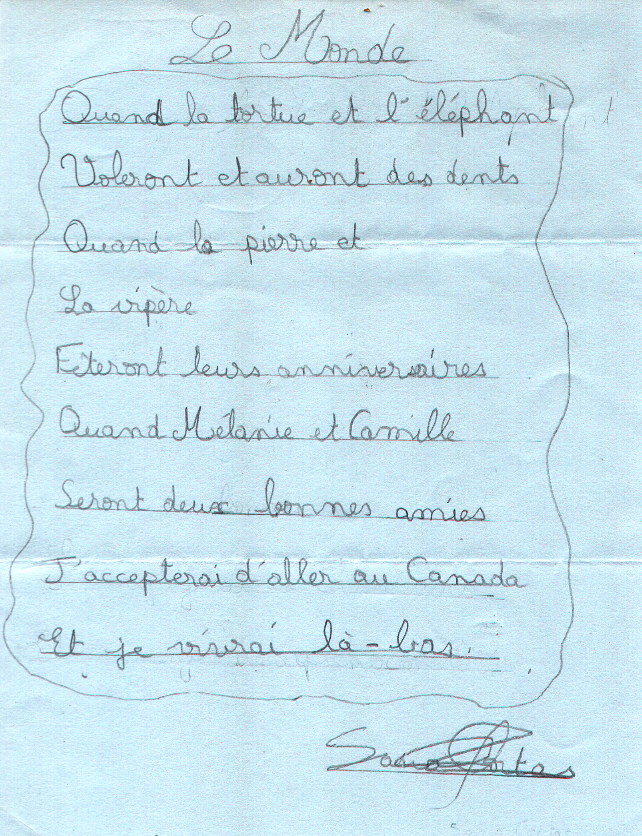 Le Monde
Quand la tortue et l'éléphant
Voleront et auront des dents
Quand la pierre et
La vipère
Feteront leurs anniversaires
Quand Mélanie et Camille
Seront deux bonnes amies
J'accepterai d'aller au Canada
Et je vivrai là-bas.